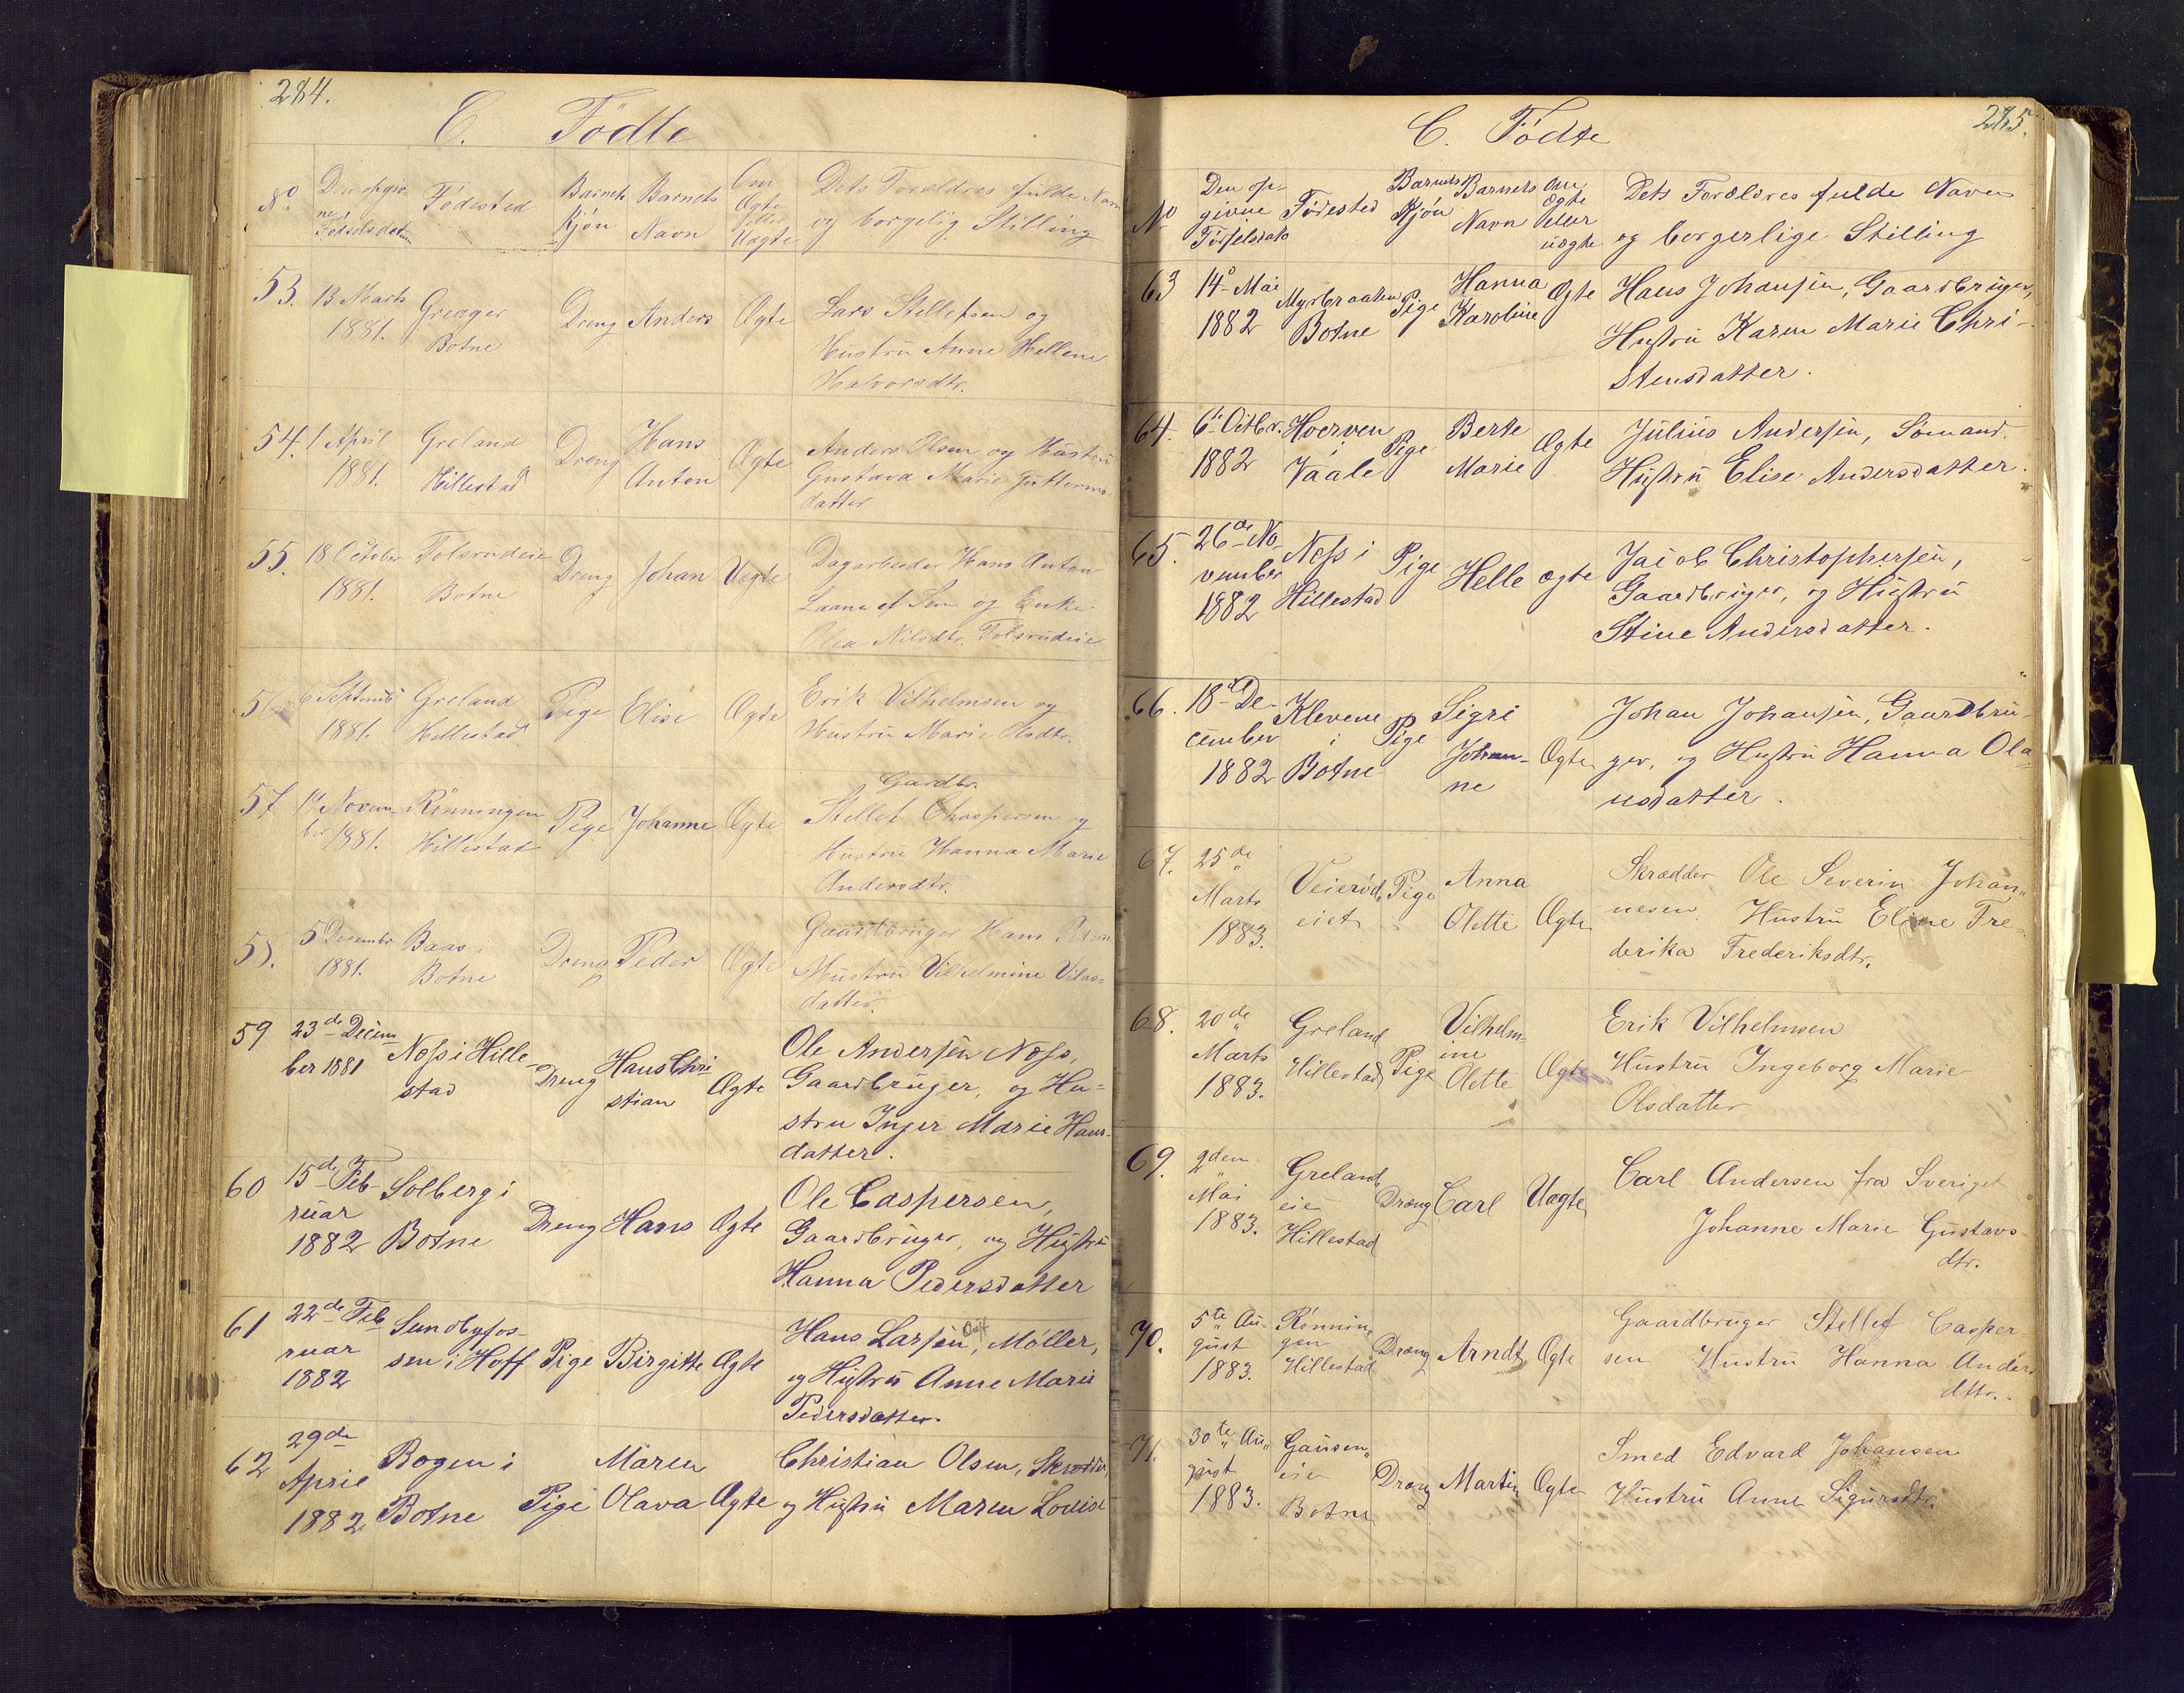 284.
C. Födte
No
Den opgiv
ne
Fødselsdatum
Födested
Barnets
Kjön
Barnets
Navn
Om
Ægte
eller
Uægte
Dets Forældres fulde Navn
og borgelig Stilling
53. 13 Marts
1881.
Greager
Botne
Dreng
Anders
Ægte
Lars Stellefsen og
Hustru Anne Hellene
Halvorsdtr.
54. 1 April
1881.
Greland
Hillestad
Dreng
Hans
Anton
Ægte
Anders Olsen og Hustru
Gustava Marie Guttorms
datter
55. 18 October
1881.
Tolsrudeie
Botne
Dreng
Johan
Uægte
Dagarbeider Hans Anton
og Enke
Olea Nilsdtr. Tolsrudeie
6 Septemb
1881.
Greland
Hillestad
Pige
Elise
Ægte
Erik Vilhelmsen og
Hustru Marie Olsdtr.
57 14 Novem
ber 1881.
Rönningen
Hillestad
Pige
Johanne
Ægte
Gardbr.
Stellef Chaspersen og
Hustru Hanna Marie
Andersdtr.
58. 5 Decembr
1881.
Baas
Botne
Dreng
Peder
Ægte
Gaardbruger Hans
Hustru Vilhelmine
datter.
59 23de Decem
ber 1881
Næss i Hille-
stad
Dreng
Hans Chri
stian
Ægte
Ole Andersen Næss,
Gaardbruger, og Hu-
stru Inger Marie Hans-
datter.
60 15de Feb-
ruar
1882
Solberg i
Botne
Dreng
Hans
Ægte
Ole Caspersen,
Gaardbruger, og Hustru
Hanna Pedersdatter
61 22de Feb
ruar
1882
Sundbyfos-
sen i Hoff
Pige
Birgitte
Ægte
Hans Larsen, Møller,
og Hustru Anne Marie
Pedersdatter.
62 29de
April
1882
Bogen i
Botne
Pige
Maren
Olava
Ægte
Christian Olsen, Skrædder,
og Hustru Maren Louise
285.
C. Födte
No
Den op-
givne
Fødselsdato
Fødested
Barnets
Kjøn
Barnets
Navn
Om
Ægte
eller
uægte
Dets Forældres fulde Navn
og borgerlige Stilling
63 14de Mai
1882
Myrbraaten
Botne
Pige
Hanna
Karoline
Ægte
Hans Johansen, Gaardbruger,
Hustru Karen Marie Chri-
stensdatter.
64. 6te Octbr.
1882
Hoerven
i
Vaale
Pige
Berte
Marie
Ægte
Julius Andersen, Sømand.
Hustru Elise Andersdatter.
65. 26de No-
vember
1882
Næss i
Hillestad
Pige
Helle
Ægte
Jacob Christophersen,
Gaardbruger, og Hustru
Stine Andersdatter.
66. 18de De-
cember
1882
Klevene
i
Botne
Pige
Sigri
Johan-
ne
Ægte
Johan Johansen, Gaardbru-
ger, og Hustru Hanna Ola-
usdatter.
67. 25de
Marts
1883.
Veierød,
eiet
Pige
Anna
Olette
Ægte
Skrædder Ole Severin Johan"
nesen. Hustru Eline Fre-
derika Frederiksdtr.
68. 20de
Marts
1883.
Greland
Hillestad
Pige
Vilhelm-
ine
Olette
Ægte
Erik Vilhelmsen
Hustru Ingeborg Marie
Olsdatter
69. 2den
Mai
1883.
Greland
eie
Hillestad
Dreng
Carl
Uægte
Carl Andersen fra Sveriget
Johanne Marie Gustavs-
dtr.
70. 5te Au-
gust
1883.
Rønnin
gen
Hillestad
Dreng
Arndt
Ægte
Gaardbruger Stellef Casper-
sen Hustru Hanna Anders
dttr.
71. 30te Au"
gust
1883.
Gausen"
eie
Botne
Dreng
Martin
Ægte
Smed Edvard Johansen
Hustru Anne Sigursdtr.